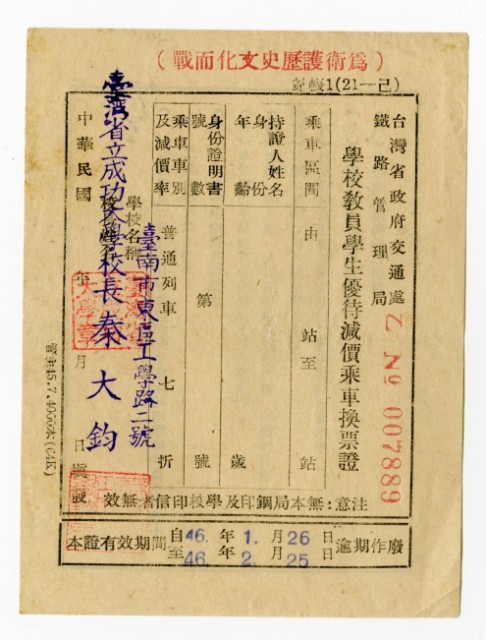 （戰而化文史歷護衛爲）
1(21—己)
台灣省政府交通處
鐵路管理局
№ 2 007889
學校教員學生優待減價乘車換票證
乘車區間 由 站至 站
持證人姓名
身份
年齡 歲
身份證明書號數 第 號
乘車車別及減價率 普通列車 七 折
學校名稱
臺南市東區工學路二號
臺灣省立成功大學校長秦大鈞
中華民國 年 月 日
效無者信印校學及印鋼局本無:意注
本證有效期間 自46.年1.月26日 至46.年2月25日 逾期作廢
45.7.4000本(64K)